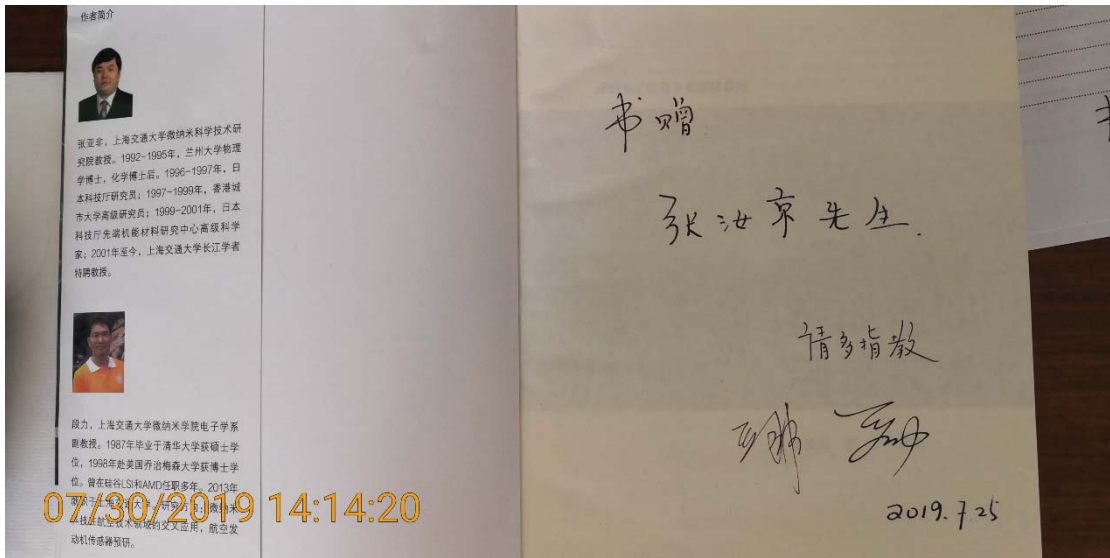 作者简介
张亚非，上海交通大学微纳米科学技术研
究院教授。1992-1995年，兰州大学物理
学博士，化学博士后。1996-1997年，日
本科技厅研究员；1997-1999年，香港城
市大学高级研究员；1999-2001年，日本
科技厅先端机能材料研究中心高级科学
家；2001年至今，上海交通大学长江学者
特聘教授。
段力，上海交通大学微纳米学院电子学系
副教授。1987年毕业于清华大学获硕士学
位，1998年赴美国乔治梅森大学获博士学
位。曾在硅谷LSI和AMD任职多年。2013年
技术在航空技术领域的交叉应用，航空发
动机传感器预研。
07/30/2019 14:14:20
书赠
张汝京先生
请多指教
2019.7.25